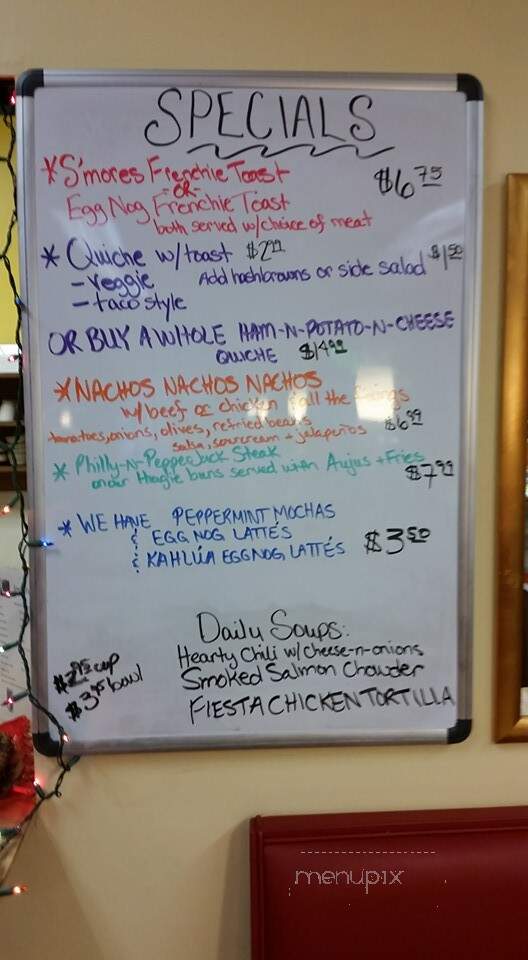 SPECIALS
*S'mores Frenchie Toast $6.75
-OR-
Egg Nog Frenchie Toast
both served w/choice of meat
* Quiche w/toast $2.99
- veggie Add hashbrowns or side salad $1.50
- taco style
OR BUY A WHOLE HAM-N-POTATO-N-CHEESE
QUICHE $14.99
*NACHOS NACHOS NACHOS
w/beef or chicken & all the fixings
tomatoes, onions, olives, refried beans $6.99
salsa, sourcream + jalapeños
* Philly-N-PepperJack Steak
on our Hoagie buns served with Aujus + Fries $7.99
* WE HAVE PEPPERMINT MOCHAS
& EGG NOG LATTÉS
& KAHLÚA EGGNOG LATTÉS $3.50
Daily Soups:
Hearty Chili w/cheese-n-onions
$2.95 cup Smoked Salmon Chowder
$3.95 bowl FIESTA CHICKEN TORTILLA
menupix